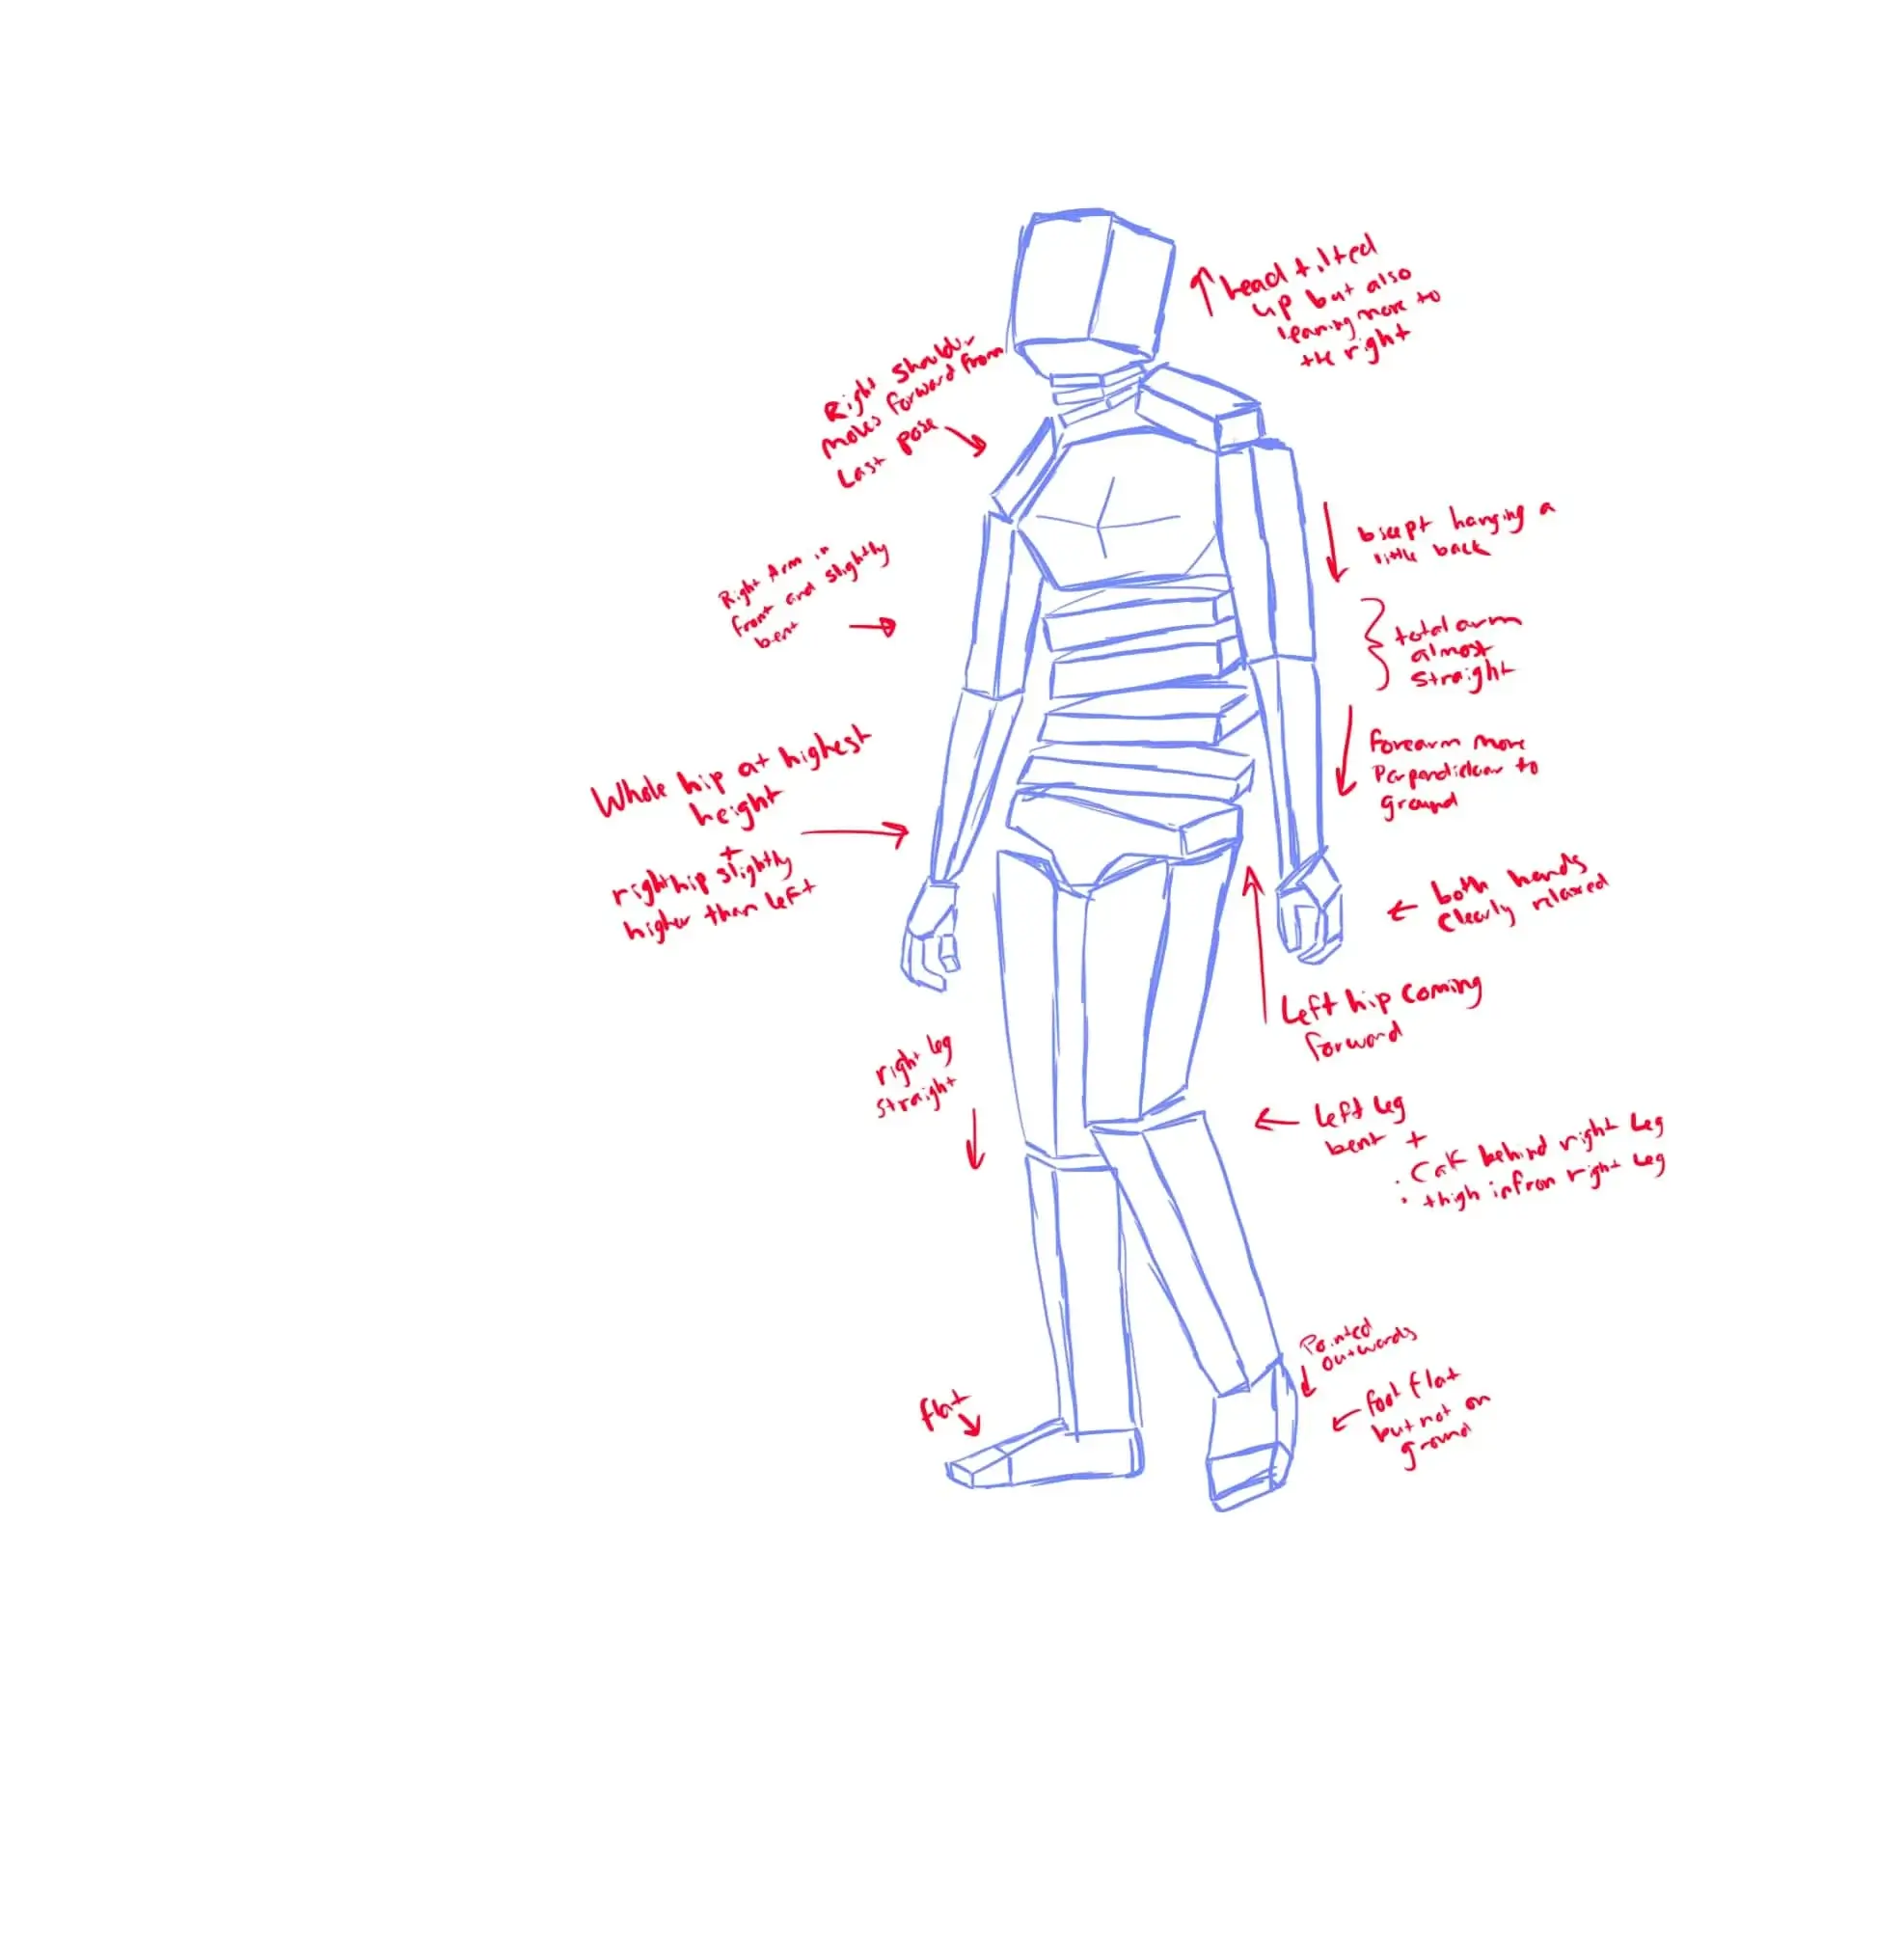 head tilted
up but also
leaning more to
the right
Right shoulder
moves forward from
Last pose
bicept hanging a
little back
Right Arm in
front and slightly
bent
total arm
almost
straight
Whole hip at highest
height
+
right hip slightly
higher than left
forearm more
Perpendicular to
ground
both hands
clearly relaxed
Left hip coming
forward
right leg
straight
left leg
bent +
• Calf behind right leg
• thigh infron right leg
Pointed
outwards
flat
foot flat
but not on
ground